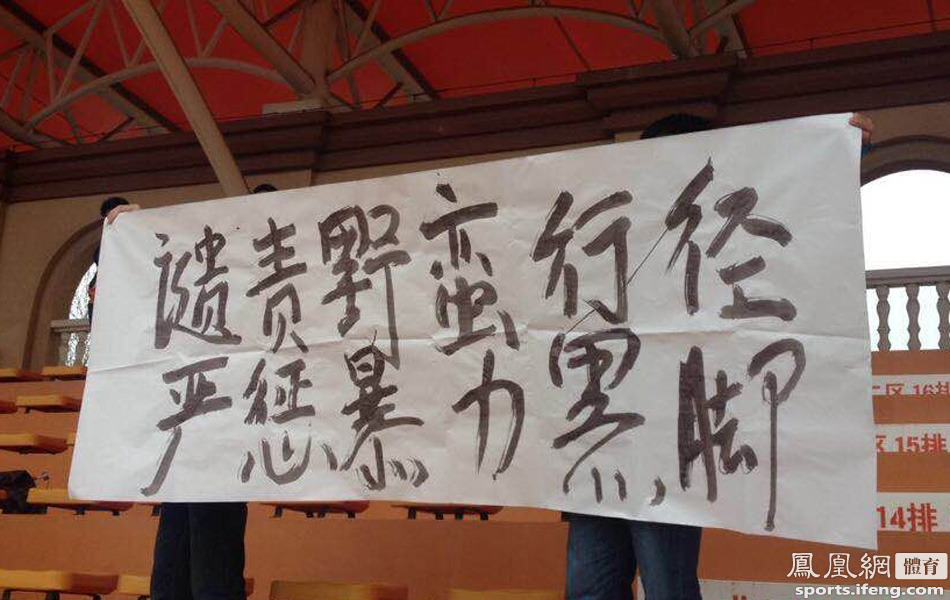 谴责野蛮行径
严惩暴力黑脚
二区 16排
区 15排
14排
鳳凰網 體育
sports.ifeng.com